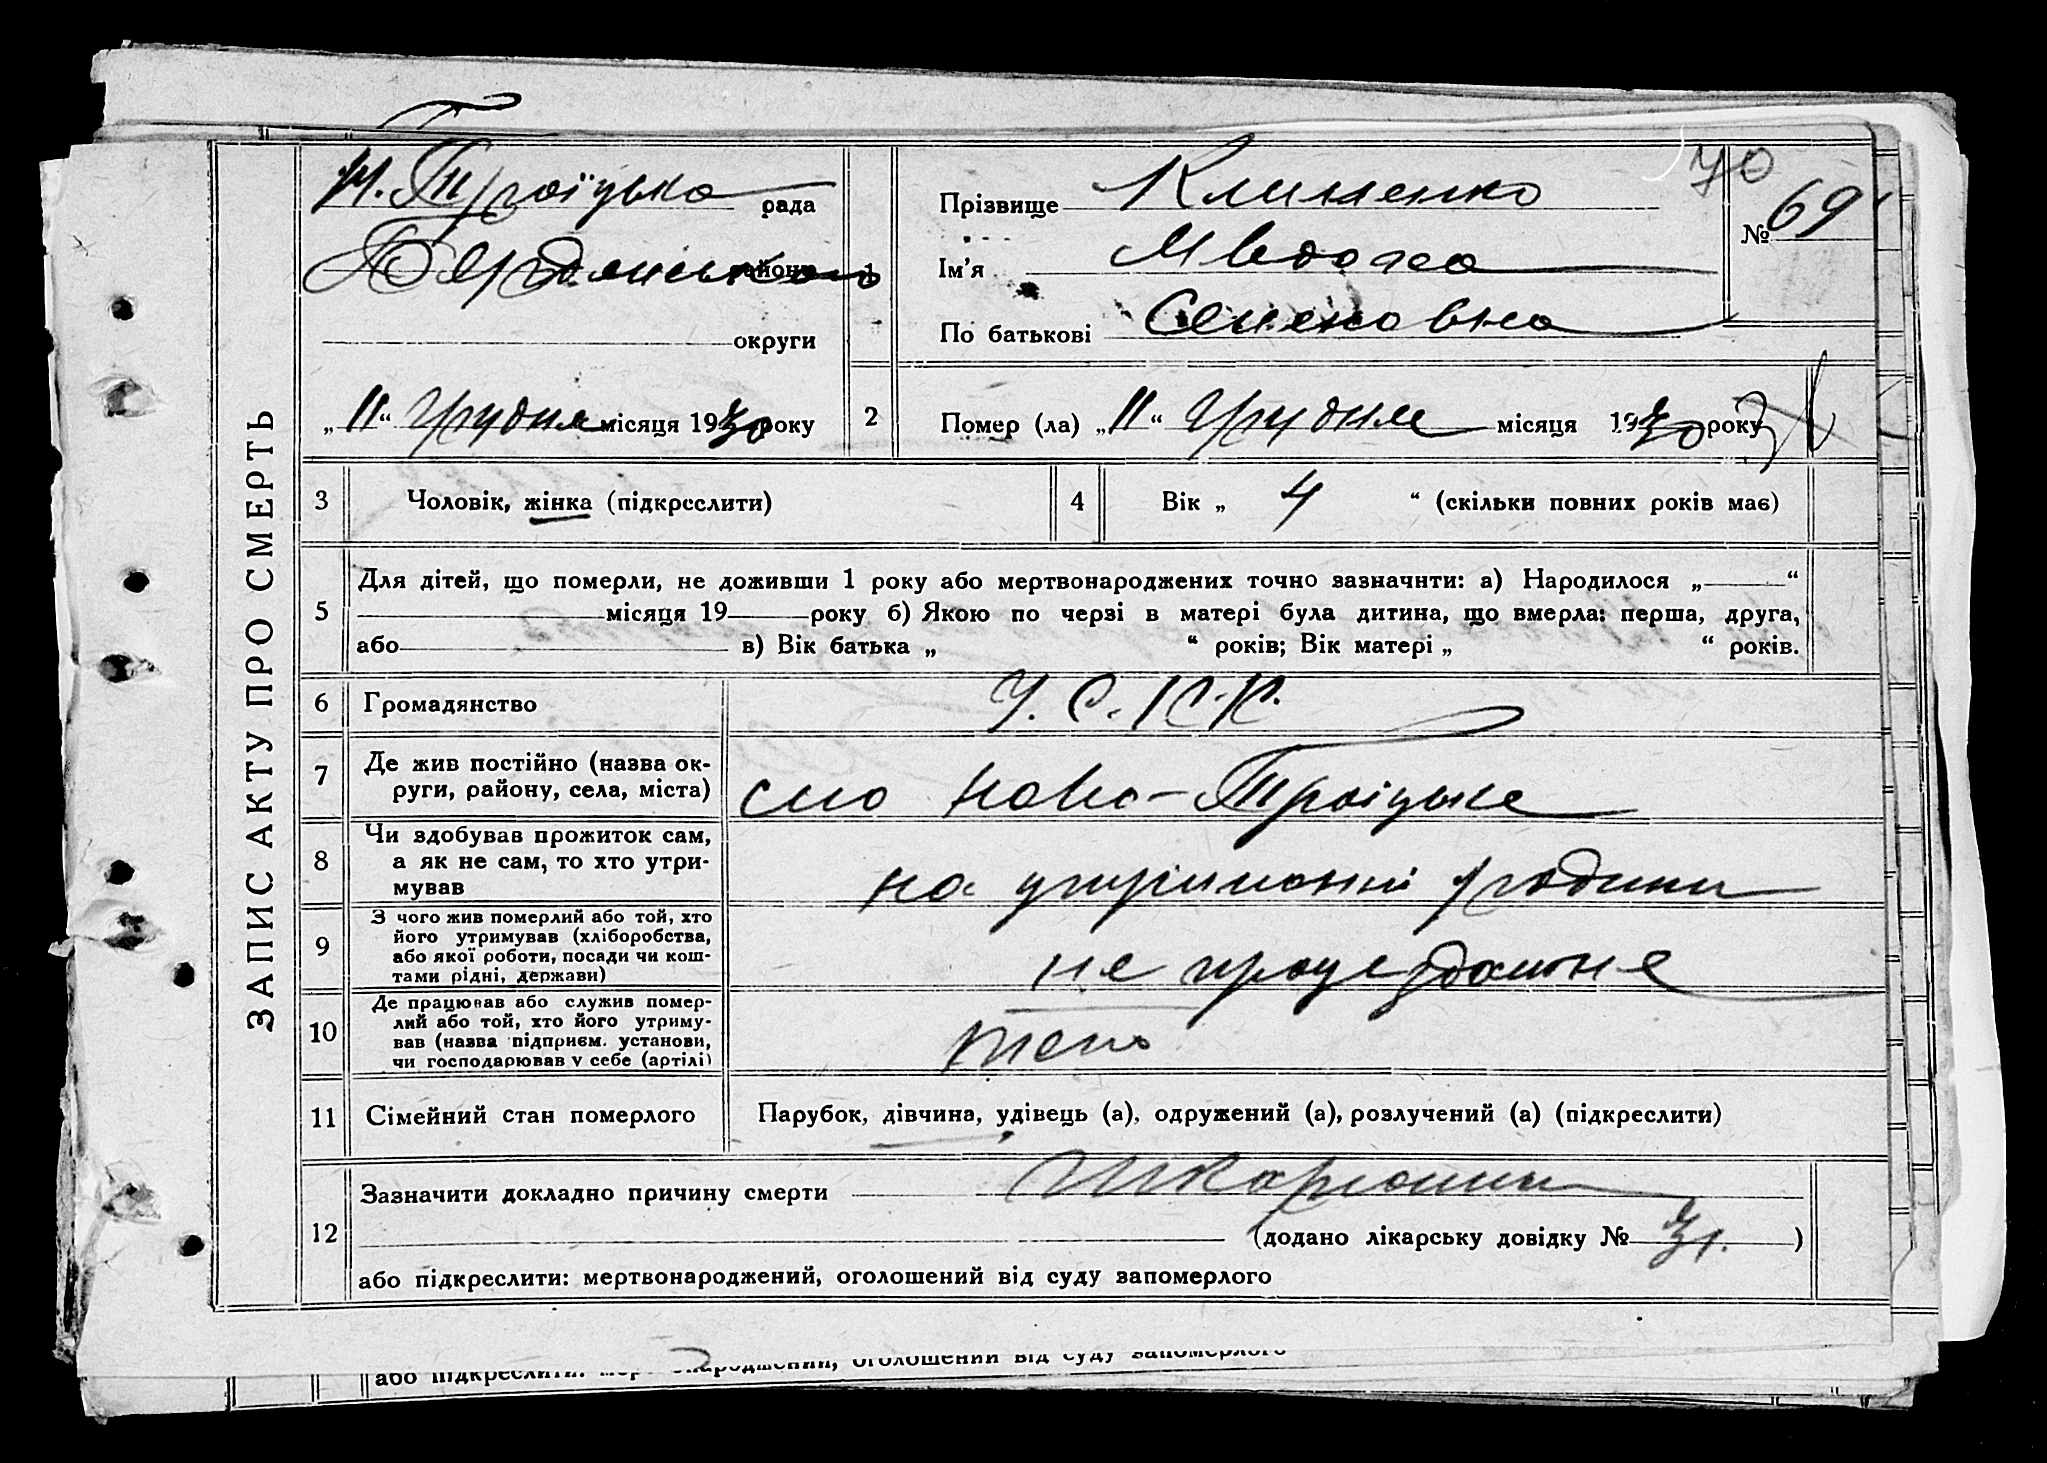 ЗАПИС АКТУ ПРО СМЕРТЬ
Н. Троїцька рада
Бердянського району
округи
„11“ грудня місяця 1930 року
1
Прізвище Клименко
Ім'я Мвдоха
По батькові Семеновна
70
№ 69
2 Помер (ла) „11“ грудня місяця 1930 року
3 Чоловік, жінка (підкреслити)
4 Вік „ 4 “ (скільки повних років має)
5 Для дітей, що померли, не доживши 1 року або мертвонароджених точно зазначити: а) Народилося „ “
місяця 19 року б) Якою по черзі в матері була дитина, що вмерла: перша, друга,
або в) Вік батька „ “ років; Вік матері „ “ років.
6 Громадянство У.С.Р.Р.
7 Де жив постійно (назва округи, району, села, міста) село Ново-Троїцьке
8 Чи здобував прожиток сам,
а як не сам, то хто утри-
мував
на утриманні родини
9 З чого жив померлий або той, хто
його утримував (хліборобства,
або якої роботи, посади чи кош-
тами рідні, держави)
не працездатне
10 Де працював або служив помер-
лий або той, хто його утриму-
вав (назва підприєм. установи,
чи господарював у себе (артілі)
11 Сімейний стан померлого Парубок, дівчина, удівець (а), одружений (а), розлучений (а) (підкреслити)
12 Зазначити докладно причину смерти Шкарлатина
(додано лікарську довідку № 31. )
або підкреслити: мертвонароджений, оголошений від суду запомерлого
або підкреслити: мертвонароджений, оголошений від суду запомерлого